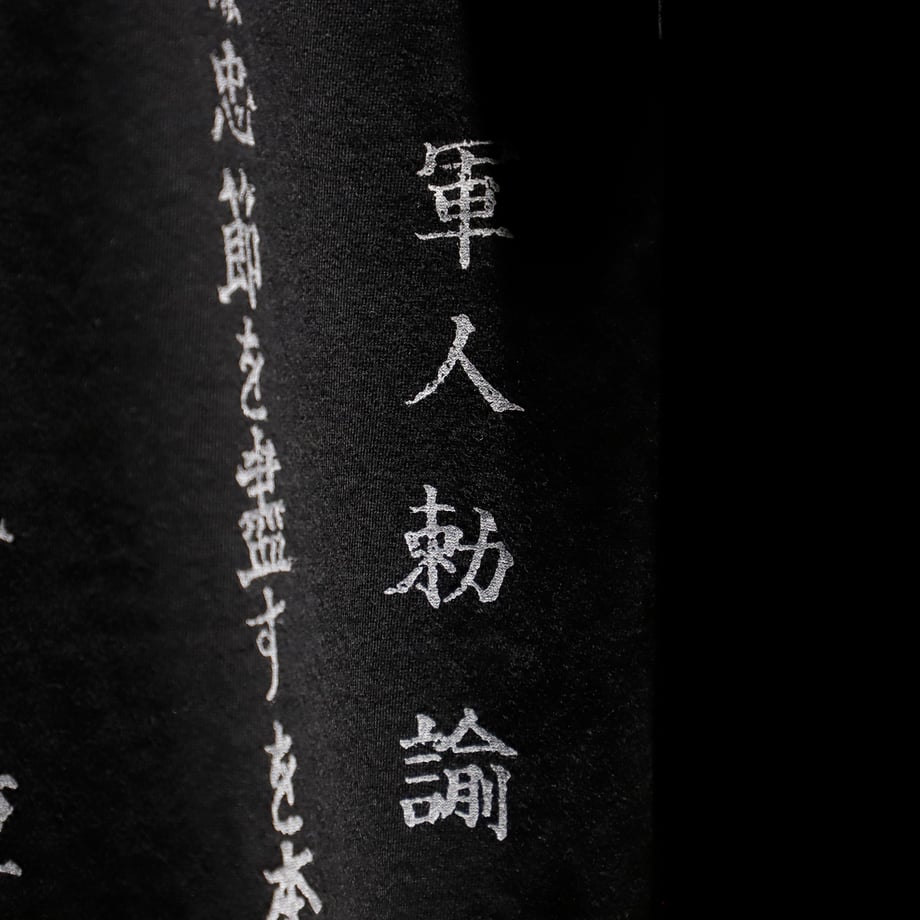 軍人勅諭
忠節を盡すを本